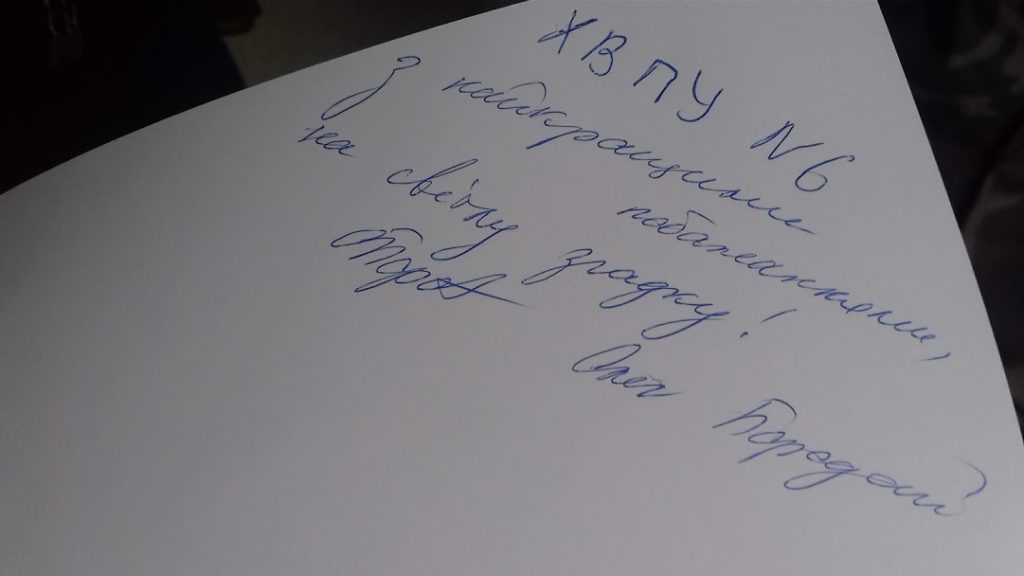 ХВПУ №6
З найкращими побажаннями,
на світлу згадку!
Олег Бородай